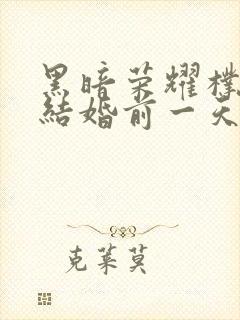 黑暗荣耀樸
結婚前一天
克莱莫